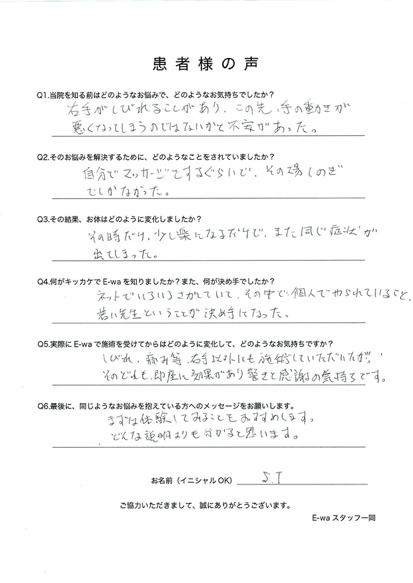 患者様の声
Q1.当院を知る前はどのようなお悩みで、どのようなお気持ちでしたか？
右手がしびれることがあり、この先、手の動きが
悪くなってしまうのではないかと不安があった。
Q2.そのお悩みを解決するために、どのようなことをされていましたか？
自分でマッサージをするぐらいで、その場しのぎ
でしかなかった。
Q3.その結果、お体はどのように変化しましたか？
その時だけ、少し楽になるだけで、また同じ症状が
出てしまった。
Q4.何がキッカケでE-waを知りましたか？また、何が決め手でしたか？
ネットでいろいろさがしていて、その中で個人でやられていると、
若い先生ということが決め手になった。
Q5.実際にE-waで施術を受けてからはどのように変化して、どのようなお気持ちですか？
しびれ、痛み等、右手以外にも施術していただいたが、
そのどれも即座に効果があり驚きと感謝の気持ちです。
Q6.最後に、同じようなお悩みを抱えている方へのメッセージをお願いします。
まずは体験してみることをおすすめします。
どんな説明よりも分かると思います。
お名前（イニシャルOK） S.T
ご協力いただきまして、誠にありがとうございます。
E-waスタッフ一同